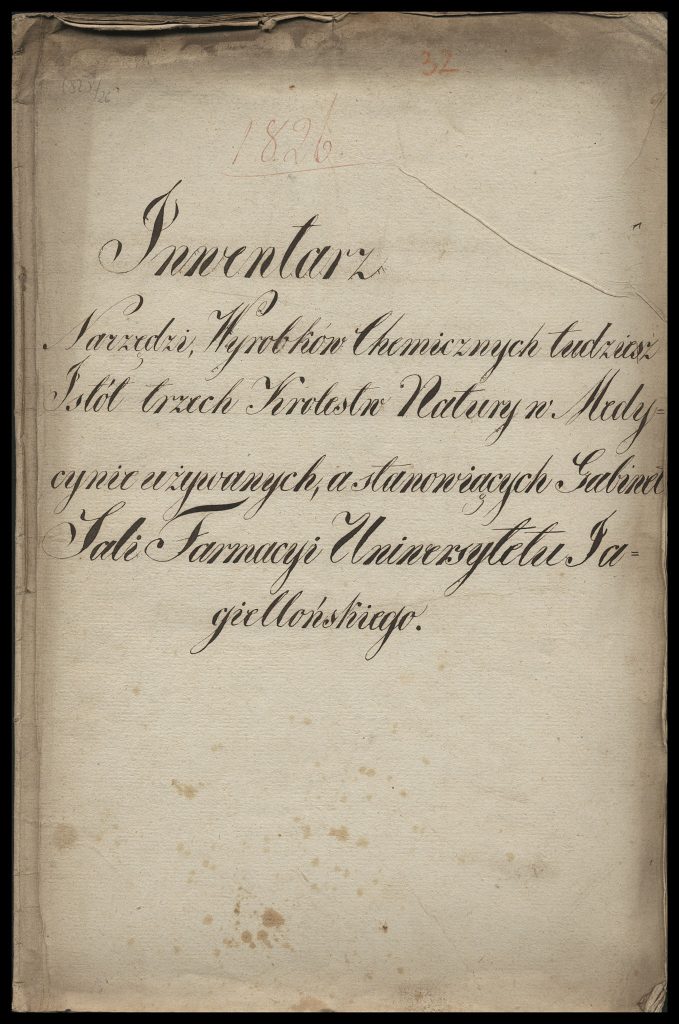 32
1825/26
1826.
Inwentarz
Narzędzi, Wyrobków Chemicznych tudziesz
Istót trzech Krolestw Natury w Medy=
cynie używanych, a stanowiących Gabinet
Sali Farmacyi Uniwersytetu Ja=
giellońskiego.